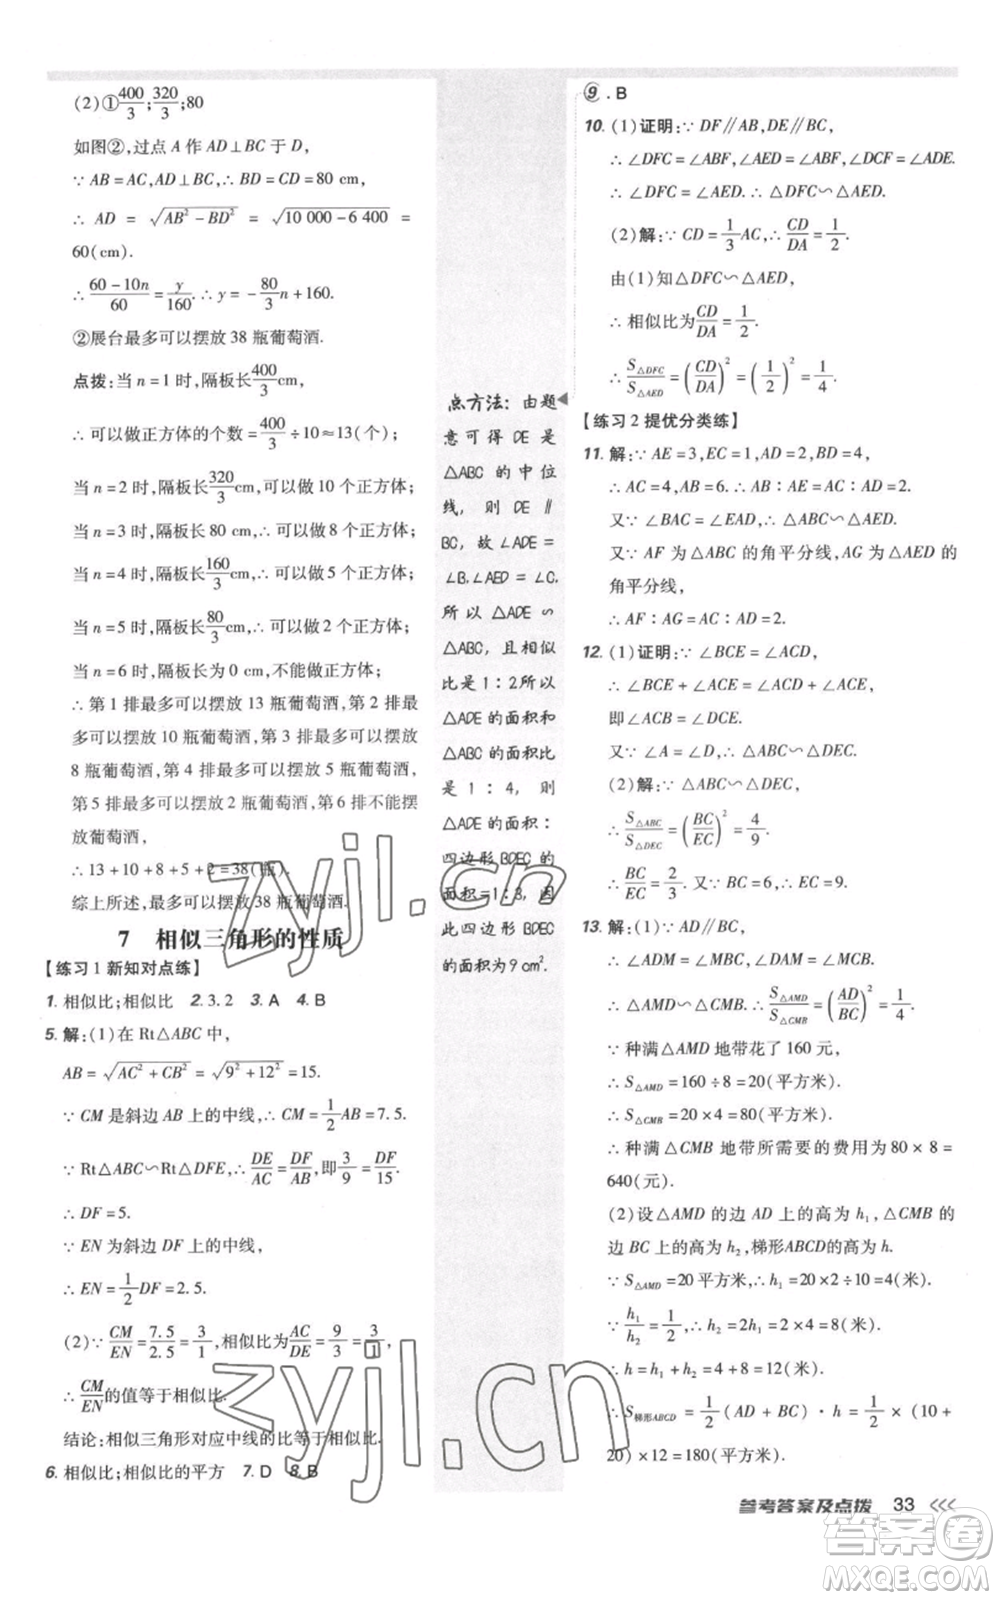 (2)①400/3;320/3;80
如图②,过点 A 作 AD⊥BC 于 D,
∵ AB=AC,AD⊥BC,∴ BD=CD=80 cm,
∴ AD = √(AB²−BD²) = √(10 000−6 400) =
60(cm).
∴ (60−10n)/60 = y/160. ∴ y = −80/3 n+160.
②展台最多可以摆放 38 瓶葡萄酒.
点拨:当 n=1 时,隔板长400/3 cm,
∴ 可以做正方体的个数=400/3÷10≈13(个);
当 n=2 时,隔板长320/3,∴ 可以做 10 个正方体;
当 n=3 时,隔板长 80cm,∴ 可以做 8 个正方体;
当 n=4 时,隔板长160/3cm,∴ 可以做 5 个正方体;
当 n=5 时,隔板长80/3cm,∴ 可以做 2 个正方体;
当 n=6 时,隔板长为 0 cm,不能做正方体;
∴ 第 1 排最多可以摆放 13 瓶葡萄酒,第 2 排最
多可以摆放 10 瓶葡萄酒,第 3 排最多可以摆放
8 瓶葡萄酒,第 4 排最多可以摆放 5 瓶葡萄酒,
第 5 排最多可以摆放 2 瓶葡萄酒,第 6 排不能摆
放葡萄酒,
∴ 13+10+8+5+2=38(瓶).
综上所述,最多可以摆放 38 瓶葡萄酒.
7 相似三角形的性质
【练习 1 新知对点练】
1. 相似比;相似比 2. 3. 2 3. A 4. B
5. 解:(1)在 Rt△ABC 中,
AB=√(AC²+CB²)=√(9²+12²)=15.
∵ CM 是斜边 AB 上的中线,∴ CM=1/2AB=7.5.
∵ Rt△ABC∽Rt△DFE,∴ DE/AC=DF/AB,∴ 3/9=DF/15.
∴ DF=5.
∵ EN 为斜边 DF 上的中线,
∴ EN=1/2DF=2.5.
(2)∵ CM/EN=7.5/2.5=3/1,相似比为AC/DE=9/3=3/1,
∴ CM/EN的值等于相似比.
结论:相似三角形对应中线的比等于相似比.
6. 相似比;相似比的平方 7. D 8. B
点方法:由题
意可得 DE 是
△ABC 的中位
线,则 DE∥
BC,故∠ADE=
∠B,∠AED=∠C.
所以△ADE∽
△ABC,且相似
比是1:2所以
△ADE 的面积和
△ABC 的面积比
是 1 : 4, 则
△ADE 的面积:
四边形 BDEC 的
面积=1:3,因
此四边形 BDEC
的面积为9 cm².
9. B
10. (1)证明:∵ DF∥AB,DE∥BC,
∴ ∠DFC=∠ABF,∠AED=∠ABF,∠DCF=∠ADE.
∴ ∠DFC=∠AED. ∴ △DFC∽△AED.
(2)解:∵ CD=1/3AC,∴ CD/DA=1/2.
由(1)知△DFC∽△AED.
∴ 相似比为CD/DA=1/2.
∴ S△DFC/S△AED=(CD/DA)²=(1/2)²=1/4.
【练习 2 提优分类练】
11. 解:∵ AE=3,EC=1,AD=2,BD=4,
∴ AC=4,AB=6. ∴ AB:AE=AC:AD=2.
又∵ ∠BAC=∠EAD,∴ △ABC∽△AED.
又∵ AF 为△ABC 的角平分线,AG 为△AED 的
角平分线,
∴ AF:AG=AC:AD=2.
12. (1)证明:∵ ∠BCE=∠ACD,
∴ ∠BCE+∠ACE=∠ACD+∠ACE,
即∠ACB=∠DCE.
又∵ ∠A=∠D,∴ △ABC∽△DEC.
(2)解:∵ △ABC∽△DEC,
∴ S△ABC/S△DEC=(BC/EC)²=4/9.
∴ BC/EC=2/3. 又∵ BC=6,∴ EC=9.
13. 解:(1)∵ AD∥BC,
∴ ∠ADM=∠MBC,∠DAM=∠MCB.
∴ △AMD∽△CMB. ∴ S△AMD/S△CMB=(AD/BC)²=1/4.
∵ 种满△AMD 地带花了 160 元,
∴ S△AMD=160÷8=20(平方米).
∴ S△CMB=20×4=80(平方米).
∴ 种满△CMB 地带所需要的费用为 80×8=
640(元).
(2)设△AMD 的边 AD 上的高为 h₁,△CMB 的
边 BC 上的高为 h₂,梯形ABCD的高为 h.
∵ S△AMD=20 平方米,∴ h₁=20×2÷10=4(米).
∵ h₁/h₂=1/2,∴ h₂=2h₁=2×4=8(米).
∴ h=h₁+h₂=4+8=12(米).
∴ S梯形ABCD=1/2(AD+BC)·h=1/2×(10+
20)×12=180(平方米).
参考答案及点拨 33
zyjl.cn
zyjl.cn
答案卷
MXQE.COM